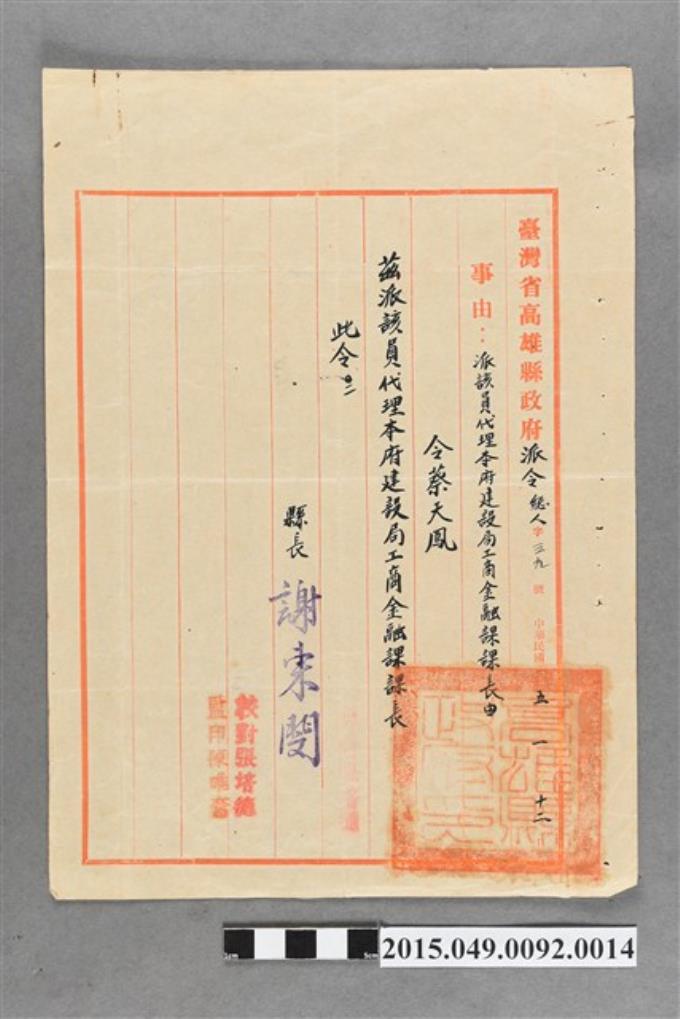 臺灣省高雄縣政府派令 總人字三九號 中華民國 五 一 十二
事由：派該員代理本府建設局工商金融課課長由
令蔡天鳳
茲派該員代理本府建設局工商金融課課長
此令
縣長 謝東閔
校對張培德
監印陳
高雄縣政府之
2015.049.0092.0014